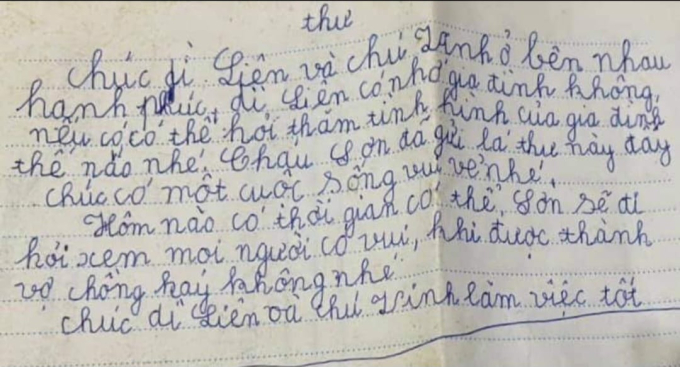 thư
Chúc dì Liên và chú Lĩnh ở bên nhau
hạnh phúc, dì Liên có nhớ gia đình không,
nếu có có thể hỏi thăm tình hình của gia đình
thế nào nhé, Cháu Sơn đã gửi lá thư này đây
chúc có một cuộc sống vui vẻ nhé.
Hôm nào có thời gian có thể, Sơn sẽ đi
hỏi xem mọi người có vui, khi được thành
vợ chồng hay không nhé
chúc dì Liên và chú làm việc tốt